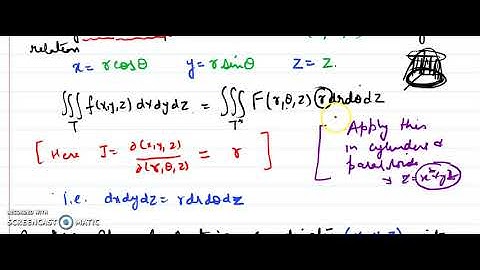 relation
x = r cosθ   y = r sinθ   z = z.
∭_T f(x,y,z) dxdydz = ∭_T* F(r,θ,z) r dr dθ dz
[ Here J = ∂(x,y,z)/∂(r,θ,z) = r ]
[ Apply this
in cylinders &
paraboloids
→ z = x²+y²
i.e. dxdydz = r dr dθ dz
RECORDED WITH
SCREENCAST MATIC